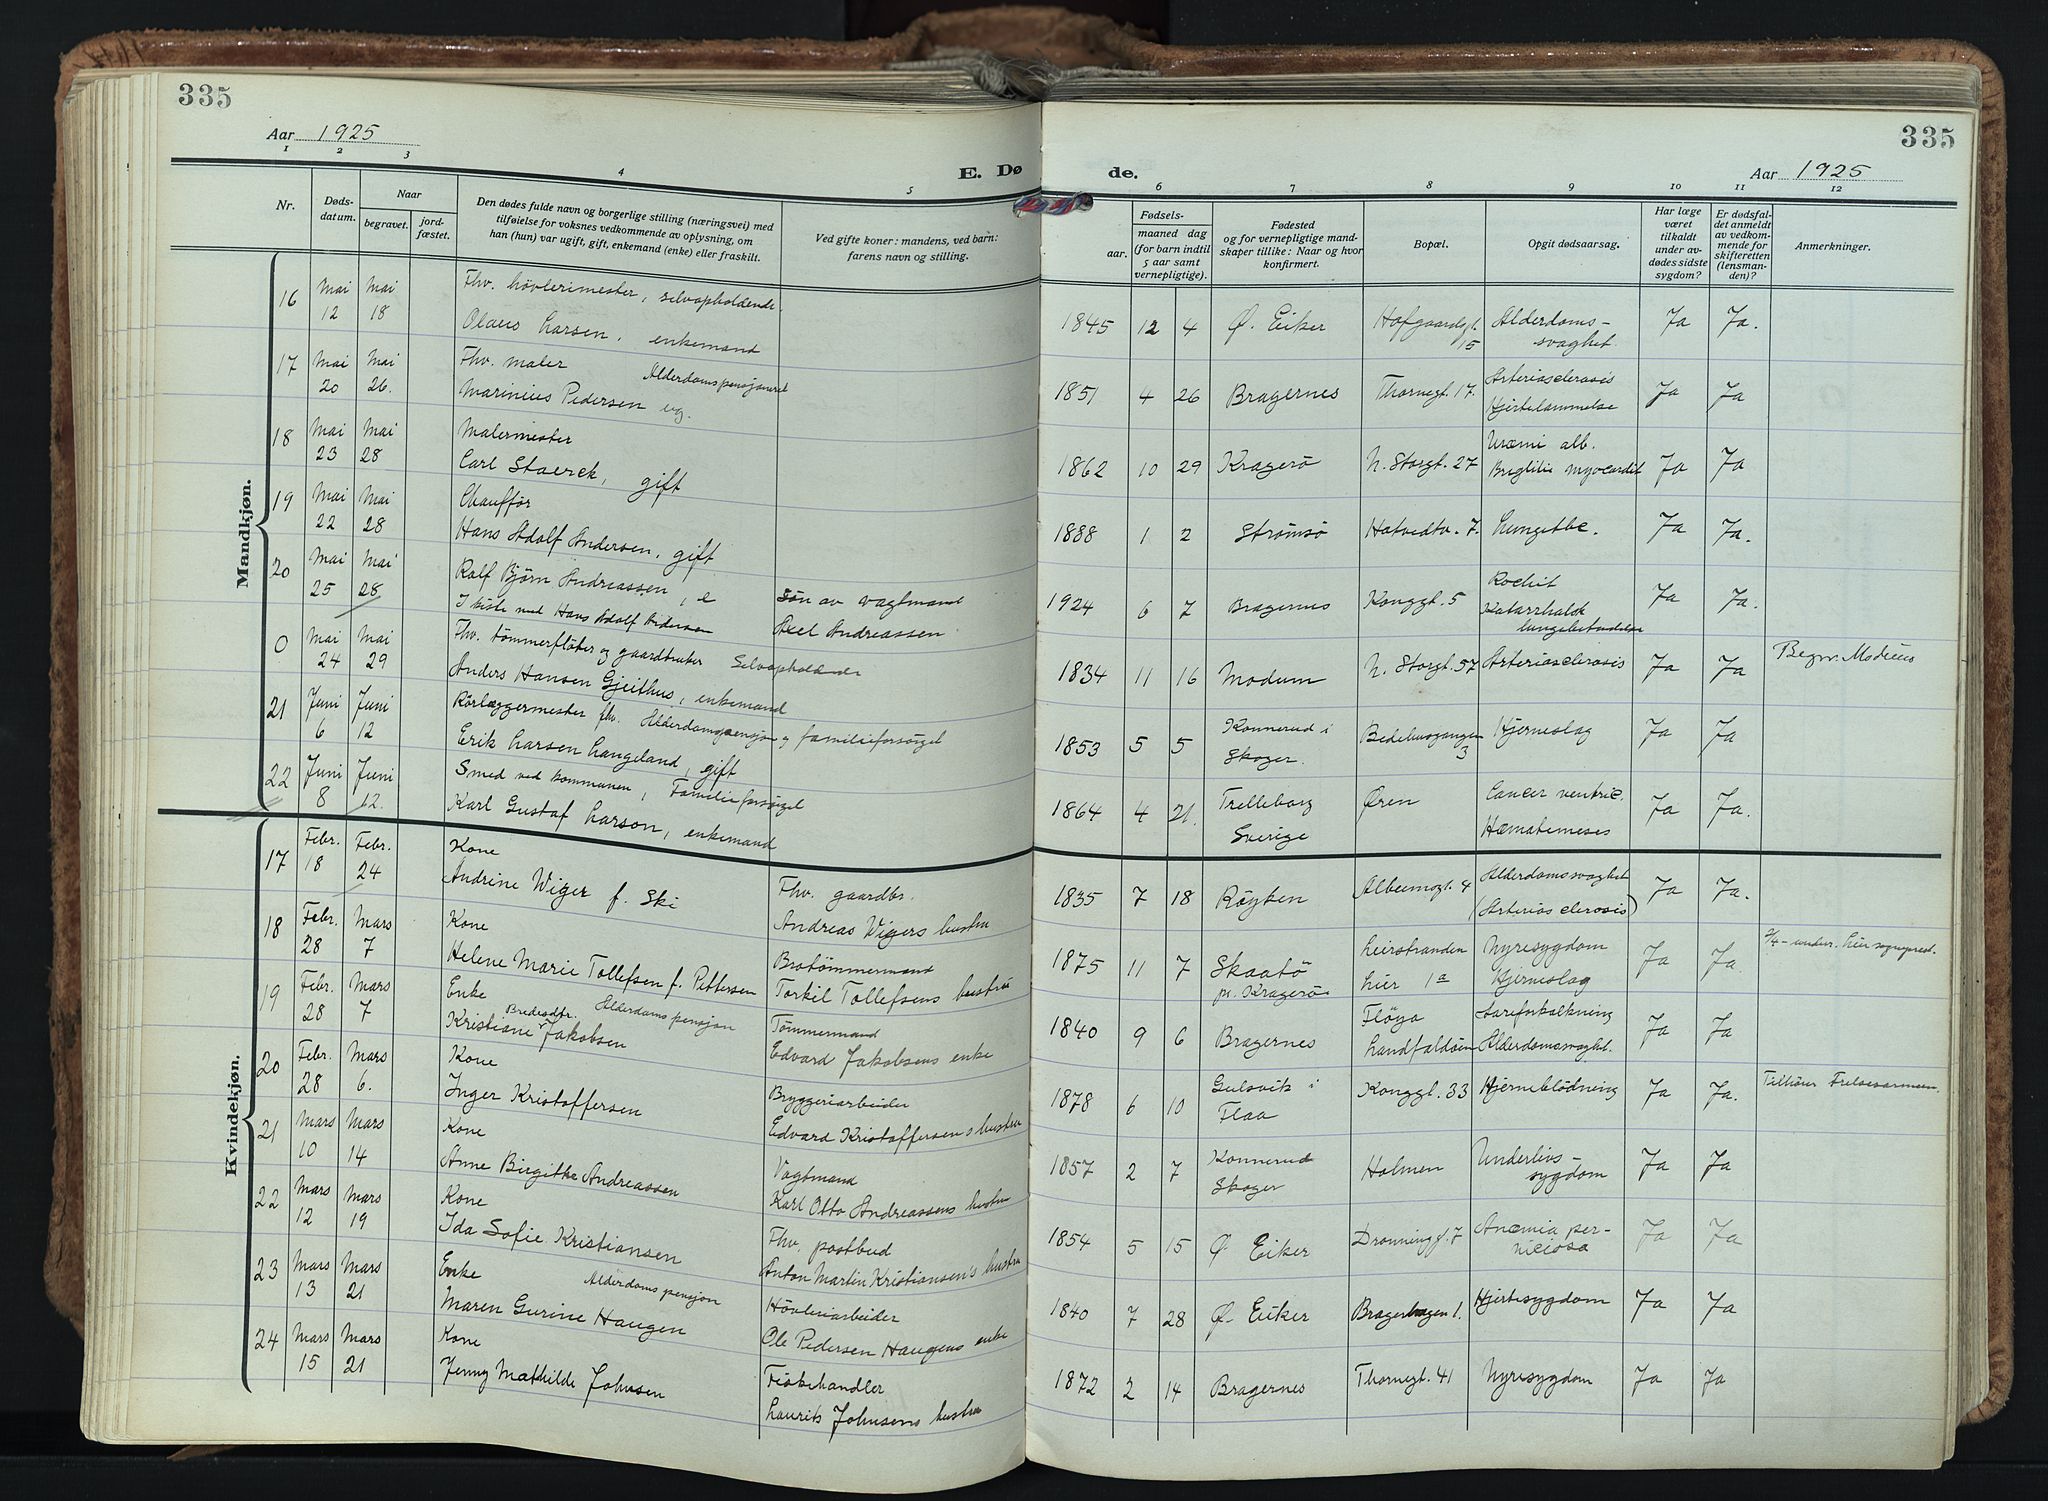 335
335
Aar 1925
E. Dø
de.
Aar 1925
1 2 3 4 5 6 7 8 9 10 11 12
Nr.
Døds-
datum.
Naar
begravet.
jord-
fæstet.
Den dødes fulde navn og borgerlige stilling (næringsvei) med
tilføielse for voksnes vedkommende av oplysning, om
han (hun) var ugift, gift, enkemand (enke) eller fraskilt.
Ved gifte koner: mandens, ved barn:
farens navn og stilling.
aar.
Fødsels-
maaned dag
(for barn indtil
5 aar samt
vernepligtige).
Fødested
og for vernepligtige mand-
skaper tillike: Naar og hvor
konfirmert.
Bopæl.
Opgit dødsaarsag.
Har læge
været
tilkaldt
under av-
dødes sidste
sygdom?
Er dødsfal-
det anmeldt
av vedkom-
mende for
skifteretten
(lensman-
den)?
Anmerkninger.
Mandkjøn.
16 Mai 12 Mai 18 Fhv. høvlerimester, selvopholdende.
Olaus Larsen, enkemand
1845 12 4 Ø. Eiker Hofgaardsgt. 15 Alderdoms-
svaghet. Ja Ja.
17 Mai 20 Mai 26. Fhv. maler Alderdomspensjoneret
Marinius Pedersen ug.
1851 4 26 Bragernes Thornegt. 17. Arteriosclerosis
Hjertelammelse Ja Ja
18 Mai 23 Mai 28 Malermester
Carl Staerck, gift
1862 10 29 Kragerø N. Storgt. 27 Uræmi alb.
myocardit Ja Ja
19 Mai 22 Mai 28 Chauffør
Hans Adolf Andersen, gift
1888 1 2 Strømsø Hatvedtv. 7. Lungetbc. Ja Ja.
20 Mai 25 Mai 28 Rolf Bjørn Andreassen, e
I kiste med Hans Adolf Andersen
søn av vagtmand
Axel Andreassen
1924 6 7 Bragernes Konggt. 5 Rachit
Katarrhalsk
lungebetændelse Ja Ja.
0 Mai 24 Mai 29 Fhv. tømmerfløter og gaardbruker Selvopholdende
Anders Hansen Gjeithus, enkemand
1834 11 16 Modum N. Storgt. 57 Arteriosclerosis Ja Ja Begr. Modum
21 Juni 6 Juni 12 Rørlæggermester fhv. Alderdomspensjon og familieforsørget
Erik Larsen Langeland, gift
1853 5 5 Konnerud i
Skoger. Bedehusgangen 3 Hjerneslag Ja Ja
22 Juni 8 Juni 12. Smed ved kommunen, Familieforsørget
Karl Gustaf Larson, enkemand
1864 4 21. Trelleborg
Sverige Øren Cancer ventric.
Hæmatemeses Ja Ja.
Kvindekjøn.
17 Febr. 18 Febr. 24 Kone
Andrine Wiger f. Ski
Fhv. gaardbr.
Andreas Wigers hustru
1835 7 18 Røyken Albumsgt. 4 Alderdomssvaghet
(Arterios clerosis) Ja Ja.
18 Febr. 28 Mars 7 Kone
Helene Marie Tollefsen f. Pettersen
Brotømmermand
Torkil Tollefsens hustru
1875 11 7 Skaatø
pr. Kragerø Lierstranden
Lier 1a Nyresygdom
Hjerneslag Ja Ja. 2/4 - underr. Lier sogneprest.
19 Febr. 28 Mars 7 Enke Alderdomspensjon
Kristiane Bredesdtr. Jakobsen
Tømmermand
Edvard Jakobsens enke
1840 9 6 Bragernes Fløya
Landfaldøen Aareforkalkning
Alderdomssvaghet. Ja Ja
20 Febr. 28 Mars 6. Kone
Inger Kristoffersen
Bryggeriarbeider
Edvard Kristoffersens hustru
1878 6 10 Gulsvik i
Flaa Konggt. 33 Hjerneblødning Ja Ja. Tilhører Frelsesarmeen.
21 Mars 10 Mars 14 Kone
Anne Birgitte Andreassen
Vagtmand
Karl Otto Andreassens hustru
1857 2 7 Konnerud
Skoger Holmen Underlivs-
sygdom Ja Ja
22 Mars 12 Mars 19 Kone
Ida Sofie Kristiansen
Fhv. postbud
Anton Martin Kristiansen's hustru
1854 5 15 Ø Eiker Dronningg. 7 Anæmia per-
niciosa Ja Ja
23 Mars 13 Mars 21 Enke Alderdomspensjon
Maren Gurine Haugen
Høvleriarbeider
Ole Pedersen Haugens enke
1840 7 28 Ø. Eiker Bragerhagen 1. Hjertesygdom Ja Ja
24 Mars 15 Mars 21 Kone
Jenny Mathilde Johnsen
Fiskehandler
Laurits Johnsens hustru
1872 2 14 Bragernes Thornegt. 41 Nyresygdom Ja Ja